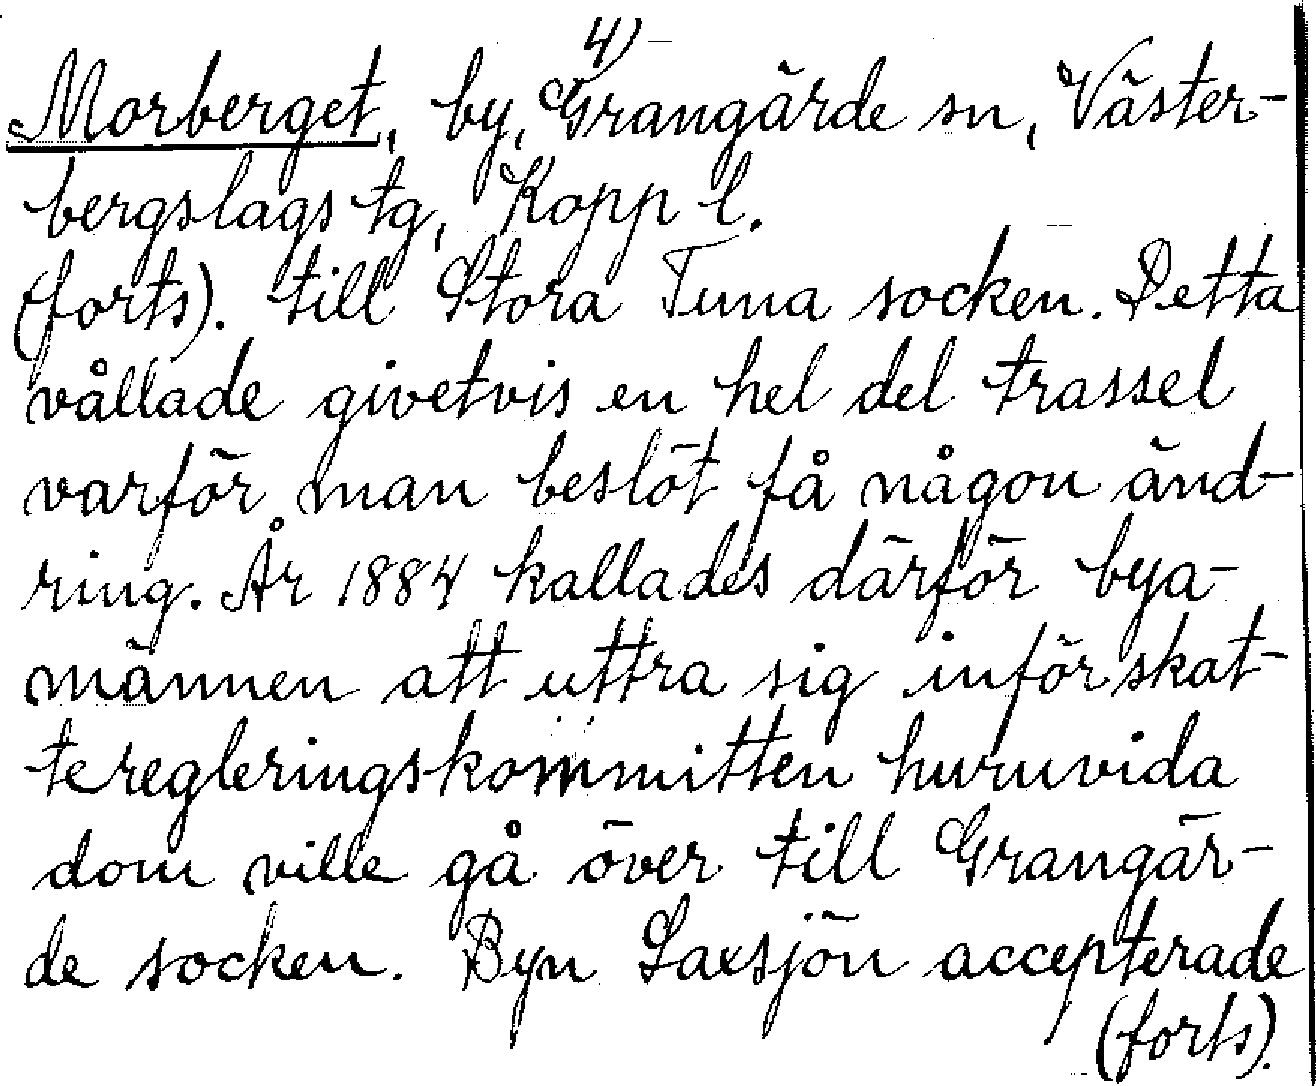 4)
Morberget, by, Grangärde sn, Väster-
bergslags tg, Kopp l.
(forts). till Stora Tuna socken. Detta
vållade givetvis en hel del trassel
varför man beslöt få någon änd-
ring. År 1884 kallades därför bya-
männen att uttra sig inför skat-
teregleringskommitten huruvida
dom ville gå över till Grangär-
de socken. Byn Saxsjön accepterade
(forts).